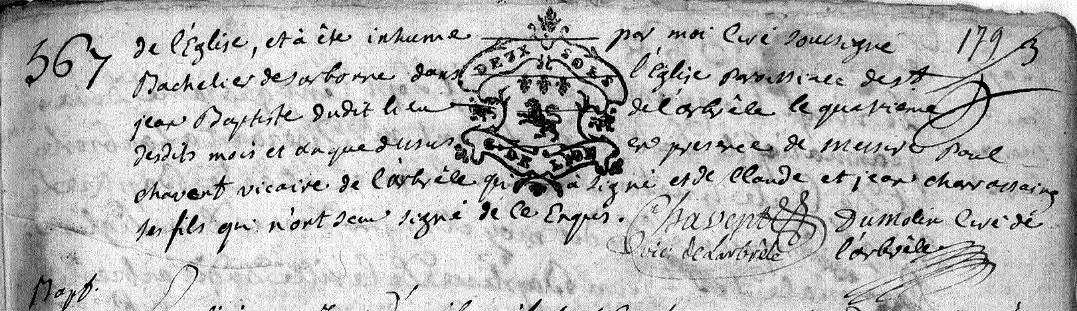 567
1793
de l'Eglise, et à été inhumé par moi Curé soussigné
DEUX SOLS
Bachelier de sorbonne dans l'Eglise Paroissiale de st
jean Baptiste dudit lieu de l'arbrêle le quatrieme
desdits mois et an que dessus en presence de messire Paul
G. DE LYON
chavent vicaire de l'arbrêle qui à signé et de Claude et jean charrossaing
ses fils qui n'ont seu signé de ce Enquis.
Chavent Dumolin Curé de
vic: de Larbrêle l'arbrêle
Bapt.